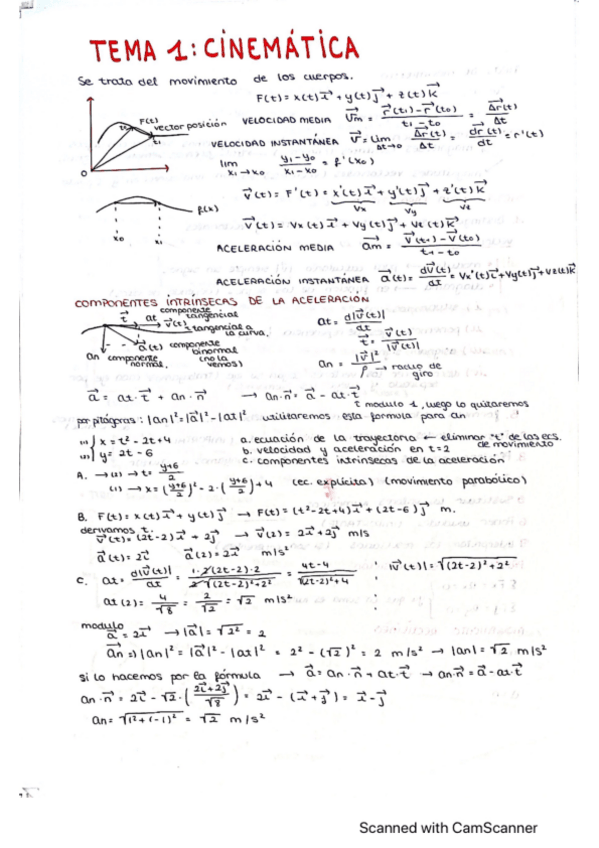 TEMA 1: CINEMÁTICA
Se trata del movimiento de los cuerpos.
F(t) = x(t)i + y(t)j + z(t)k
F(t)
vector posición
t0
t1
0
VELOCIDAD MEDIA Vm = (r(t1) - r(t0)) / (t1 - t0) = Δr(t) / Δt
VELOCIDAD INSTANTÁNEA V = lim Δt→0 Δr(t) / Δt = dr(t) / dt = r'(t)
lim x1→x0 (y1 - y0) / (x1 - x0) = f'(x0)
V(t) = F'(t) = x'(t)i + y'(t)j + z'(t)k
Vx Vy Vz
f(x)
x0 x1
V(t) = Vx(t)i + Vy(t)j + Vz(t)k
ACELERACIÓN MEDIA am = (V(t1) - V(t0)) / (t1 - t0)
ACELERACIÓN INSTANTÁNEA a(t) = dV(t) / dt = Vx'(t)i + Vy(t)j + Vz(t)k
COMPONENTES INTRÍNSECAS DE LA ACELERACIÓN
t at componente tangencial
V(t) tangencial a la curva.
a(t) componente binormal (no la vemos)
an componente normal.
at = d|V(t)| / dt
t = V(t) / |V(t)|
an = |V|² / ρ → radio de giro
a = at·t + an·n → an·n = a - at·t
t modulo 1, luego lo quitaremos
por pitágoras: |an|² = |a|² - |at|² utilitaremos esta formula para an
(1) x = t² - 2t + 4
(2) y = 2t - 6
a. ecuación de la trayectoria ← eliminar "t" de las ecs. de movimiento
b. velocidad y aceleración en t=2
c. componentes intrínsecas de la aceleración
A. → (2) → t = (y+6) / 2
(1) → x = ((y+6)/2)² - 2·((y+6)/2) + 4 (ec. explícita) (movimiento parabólico)
B. F(t) = x(t)i + y(t)j → F(t) = (t² - 2t + 4)i + (2t - 6)j m.
derivamos t.
V(t) = (2t-2)i + 2j → V(2) = 2i + 2j m/s
a(t) = 2i a(2) = 2i m/s²
C. at = d|V(t)| / dt = 1·2(2t-2)·2 / 2√((2t-2)² + 2²) = (4t-4) / √((2t-2)² + 4) |V(t)| = √((2t-2)² + 2²)
at(2) = 4/√8 = 2/√2 = √2 m/s²
modulo
a = 2i → |a| = √2² = 2
an => |an|² = |a|² - |at|² = 2² - (√2)² = 2 m/s² → |an| = √2 m/s²
si lo hacemos por la fórmula → a = an·n + at·t → an·n = a - at·t
an·n = 2i - √2·((2i + 2j)/√8) = 2i - (i + j) = i - j
an = √(1² + (-1)²) = √2 m/s²
Scanned with CamScanner